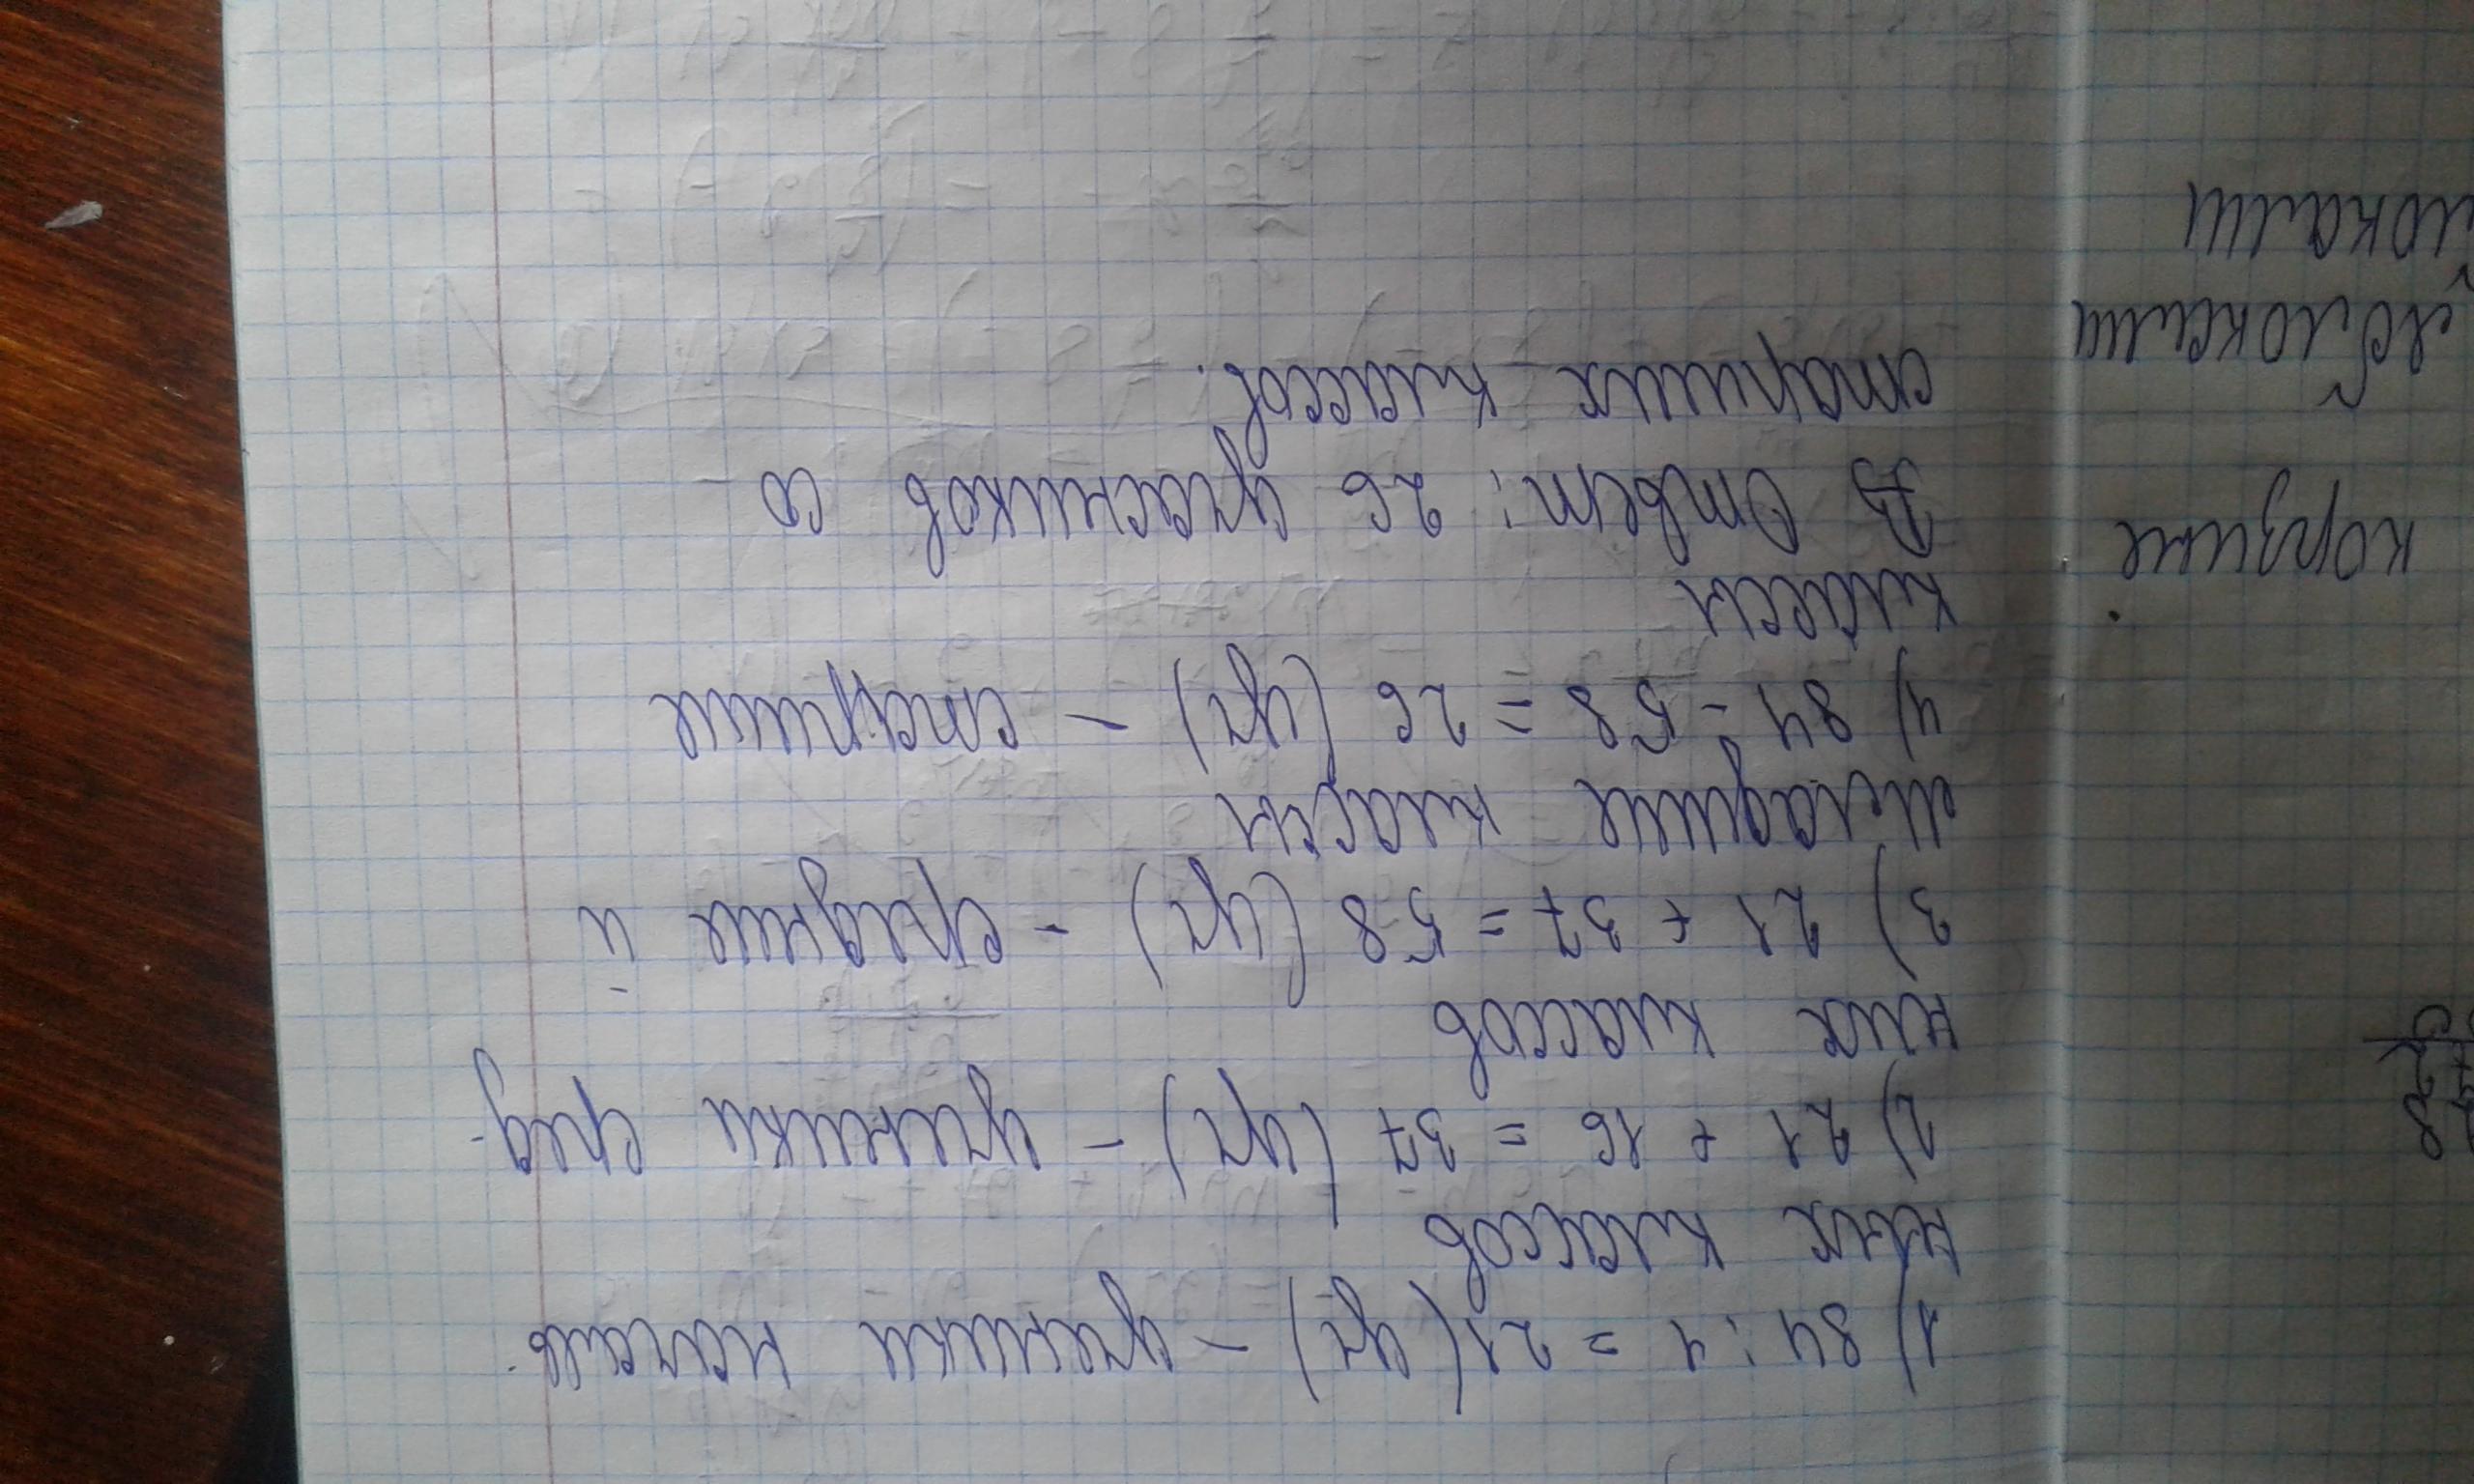 1) 84 : 4 = 21 (уч) – ученики началь-
ных классов
2) 21 + 16 = 37 (уч) – ученики сред-
них классов
3) 21 + 37 = 58 (уч) – средние и
младшие классы
4) 84 - 58 = 26 (уч) – старшие
классы
В Ответ: 26 участников со
старших классов.
корзине
яблоками